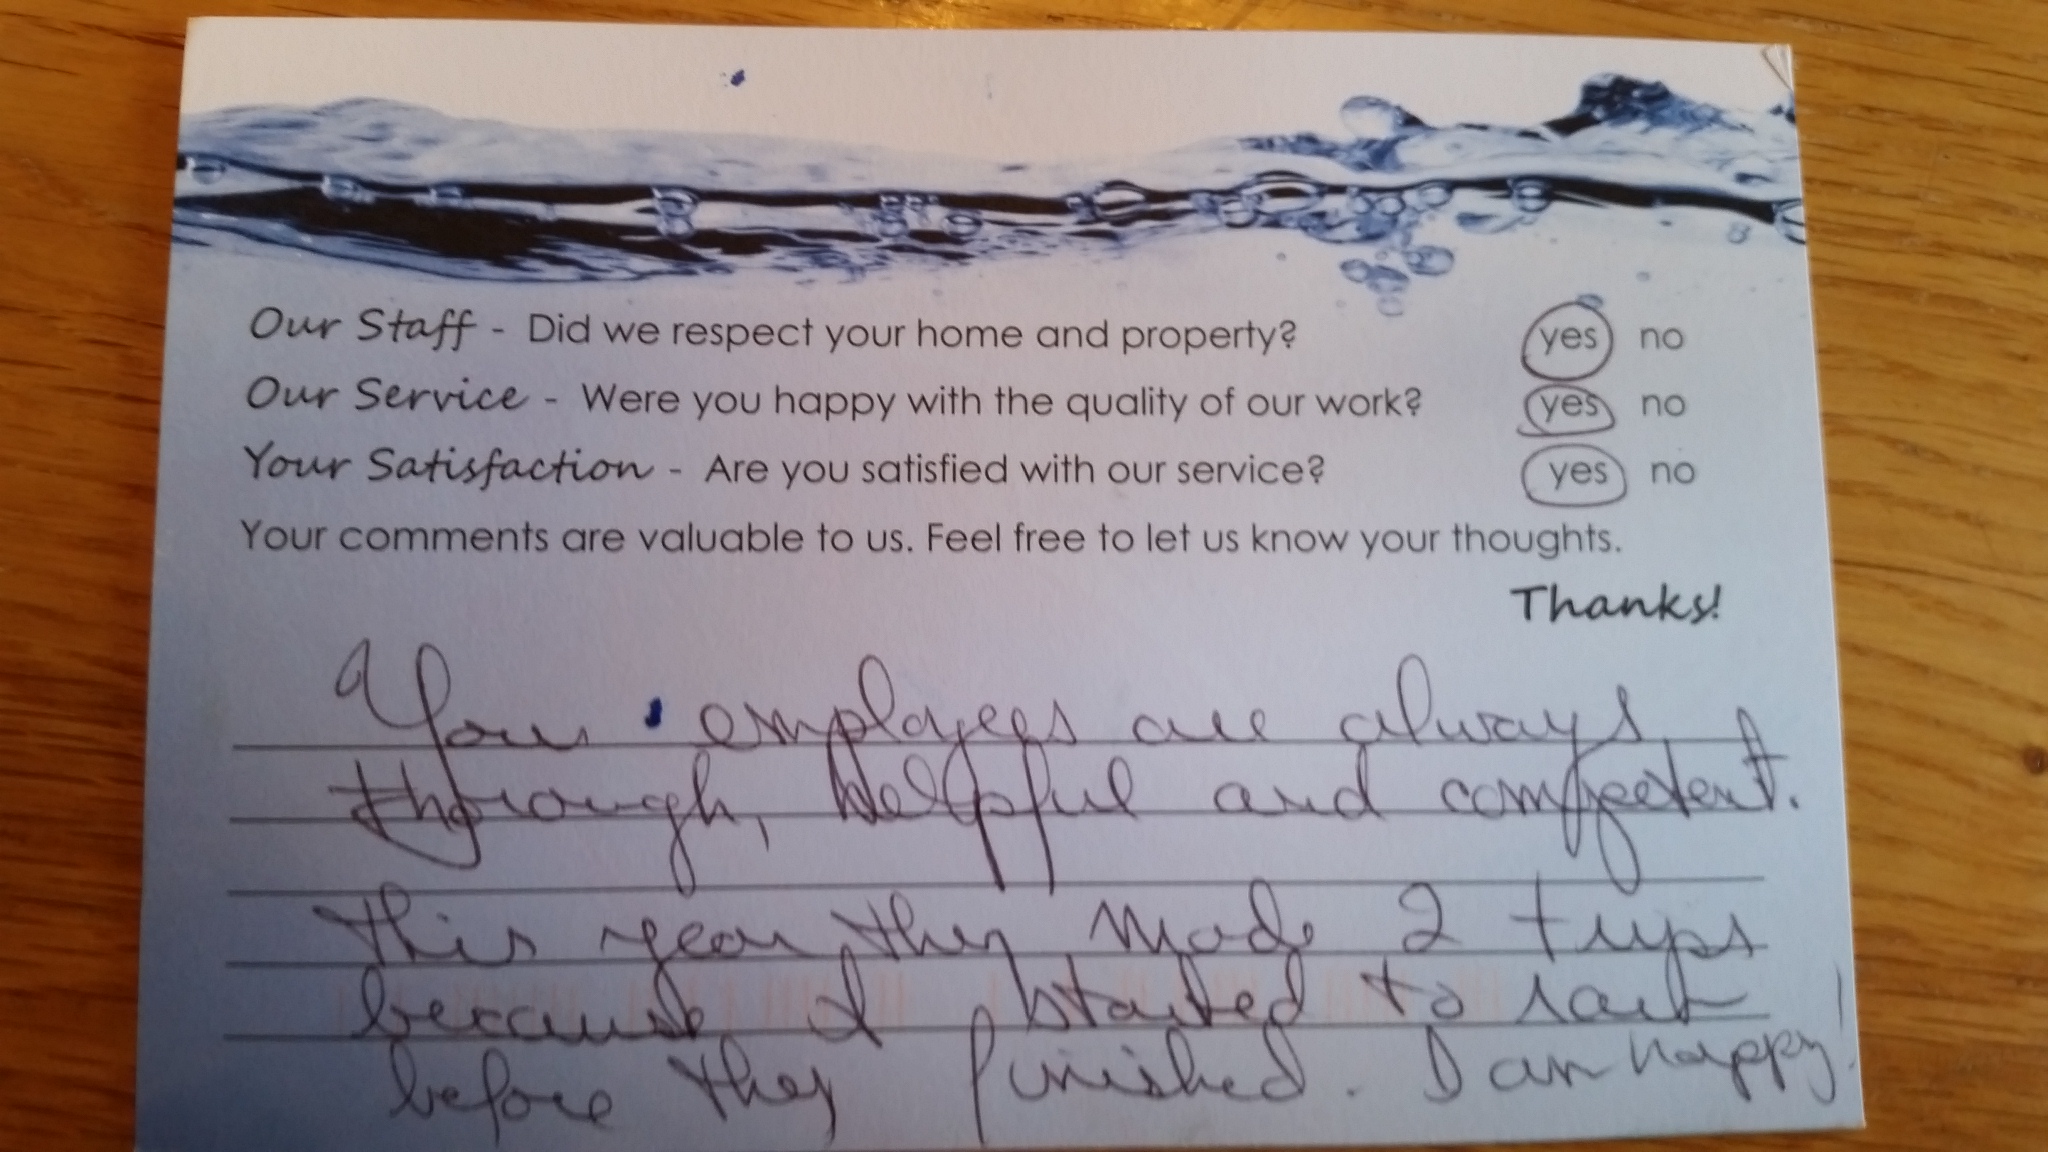 Our Staff - Did we respect your home and property? yes no
Our Service - Were you happy with the quality of our work? yes no
Your Satisfaction - Are you satisfied with our service? yes no
Your comments are valuable to us. Feel free to let us know your thoughts.
Thanks!
Your employees are always
thorough, helpful and competent.
This year they made 2 trips
because it started to rain
before they finished. I am happy!